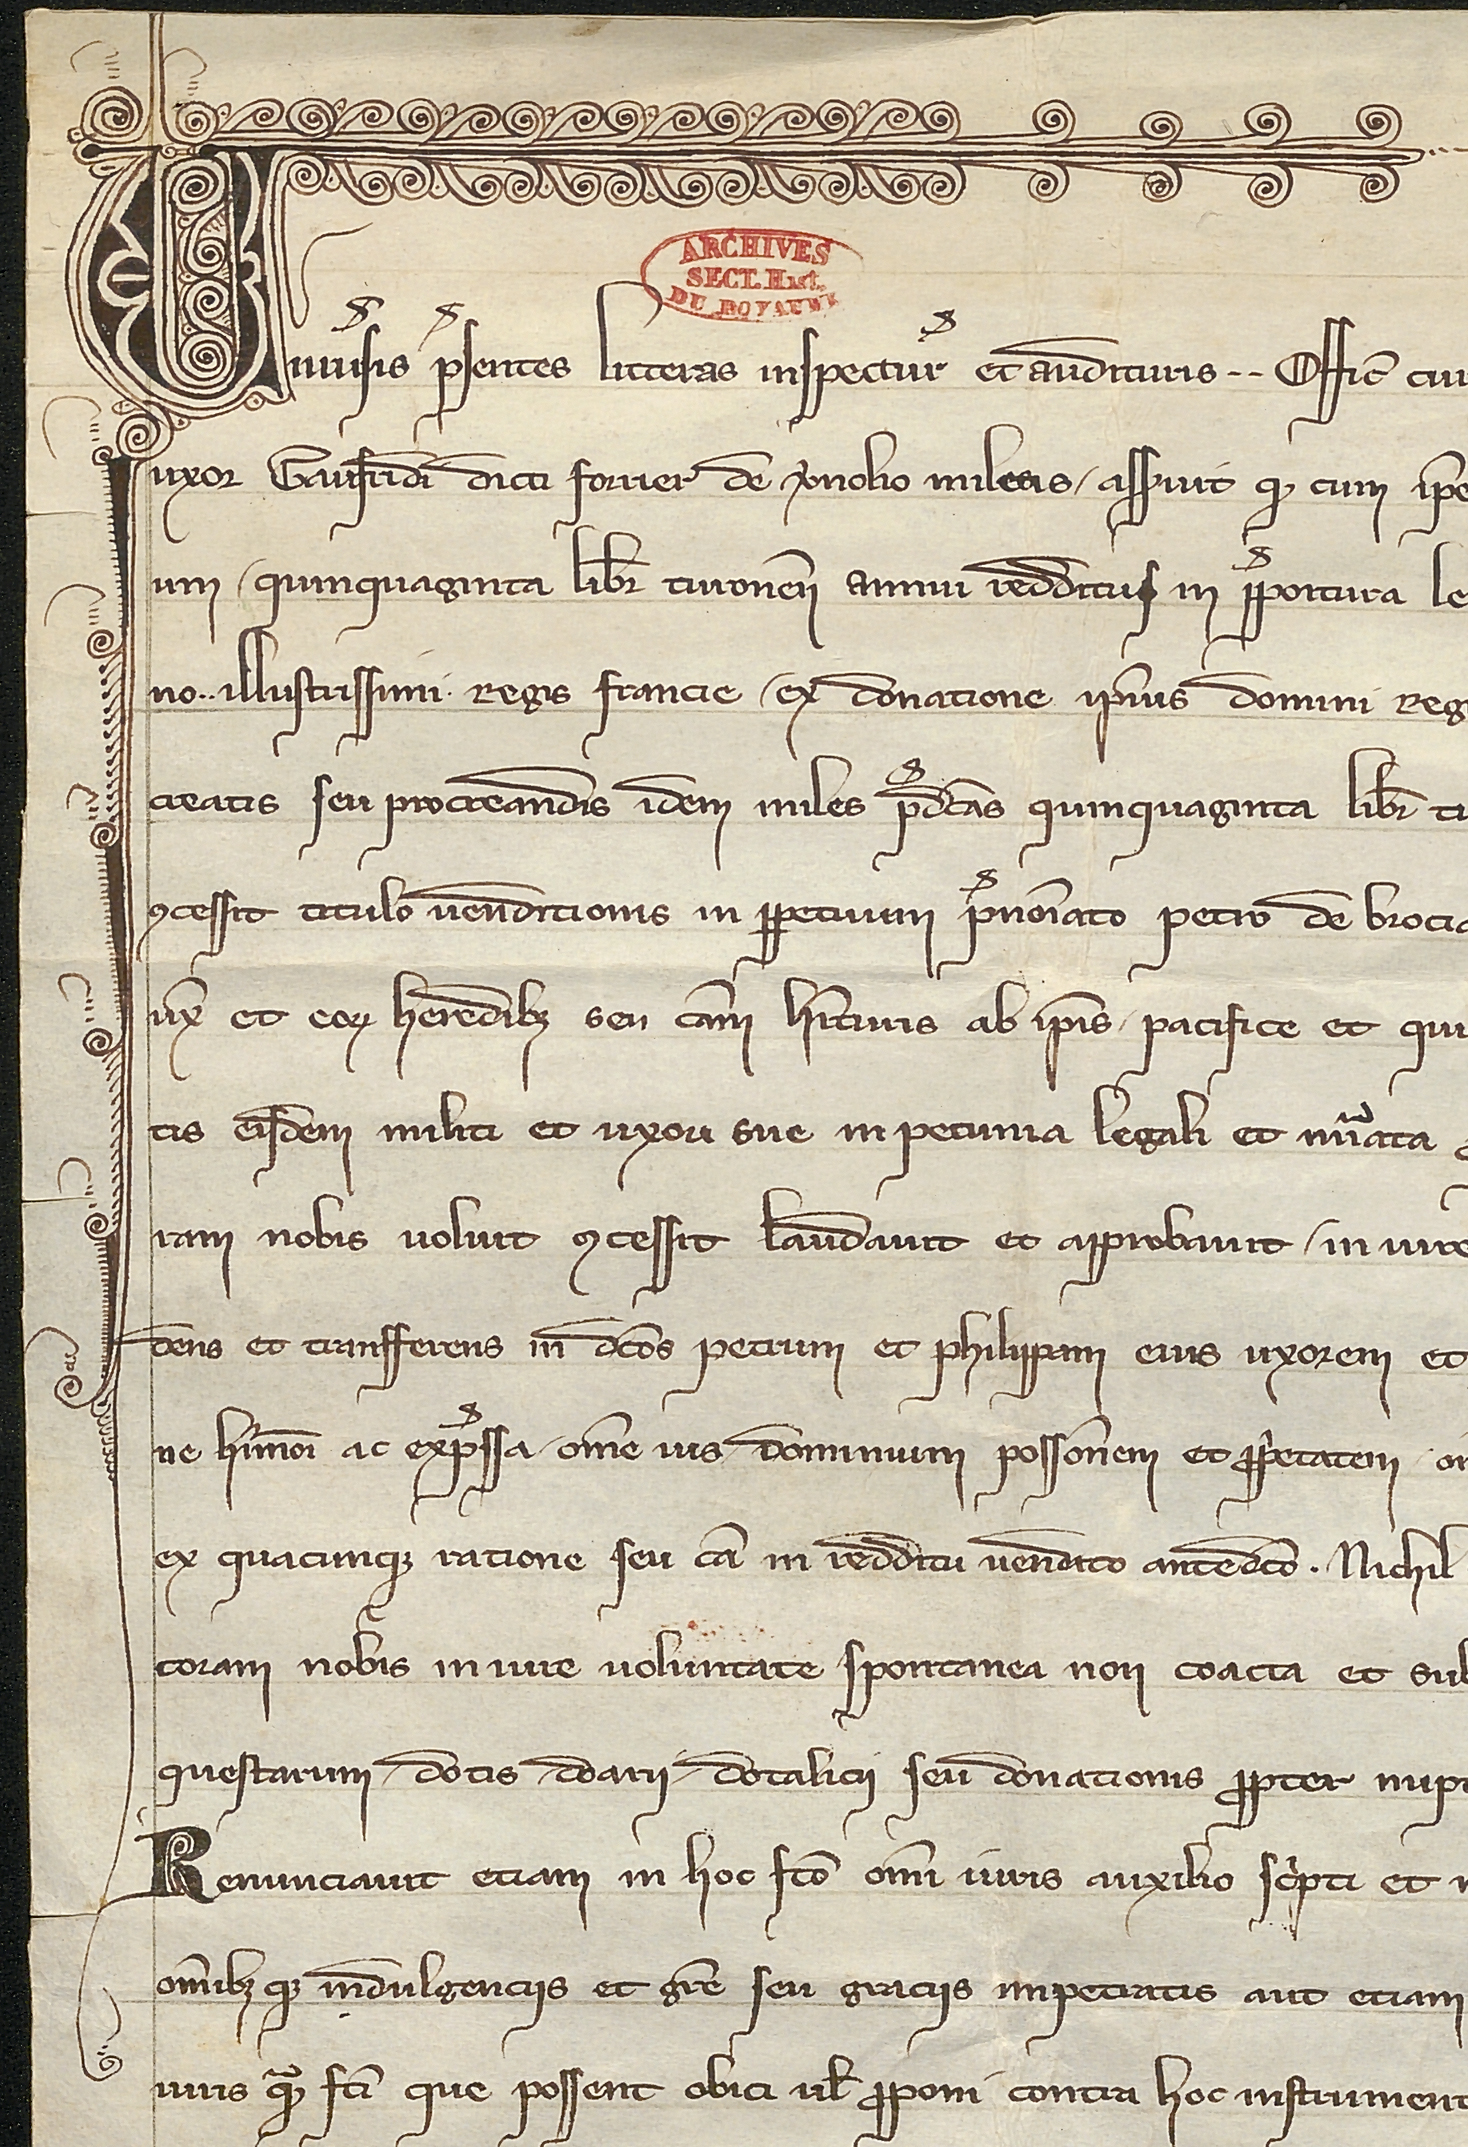 ARCHIVES
SECT. Hist.
DU ROYAUME
Vniu͛sis p͛sentes litteras inspectur͛ et audituris -- Offic̄
uxor Gaufridi dicti forrier de militis / asseruit qꝫ cum ip̄e
um / quinquaginta libr̄ turonen̄ annui redditus in p͛portura
no .. illustrissimi . Regis francie / ex donatione ip̄ius domini Reg
creatis seu procreandis idem miles p͛dc̄as quinquaginta libr̄
ꝯcessit titulo uenditionis in ꝑpetuum p͛noīato petro de brocia
ux̄ et eoꝝ heredibꝫ seu cām hn̄turis ab ip̄is / pacifice et qui
tis eisdem militi et uxori sue in pecunia legali et nūᵃata
ram nobis uoluit ꝯcessit laudauit et approbauit / in iure
dens et transferens in dc̄os petrum et philippam eius uxorem et
ne hm̄oi ac exp͛ssa / om̄e ius / dominium possōnem et ꝓp̄etatem
ex quacunqꝫ ratione seu cā in redditu uendito antedc̄o . Nichil
coram nobis in iure uoluntate spontanea non coacta et sub
questarum / dotis / doarii / dotalicii seu donationis ꝓpter nupt
Renunciauit etiam in hoc fc̄o om̄i iuris auxilio sc̄pti et
om̄ibꝫ qꝫ indulgenciis et gr̄e seu graciis impetratis aut etiam
iuris qᵃꝫ fc̄i que possent obici ul̄ ꝓponi contra hoc instrument